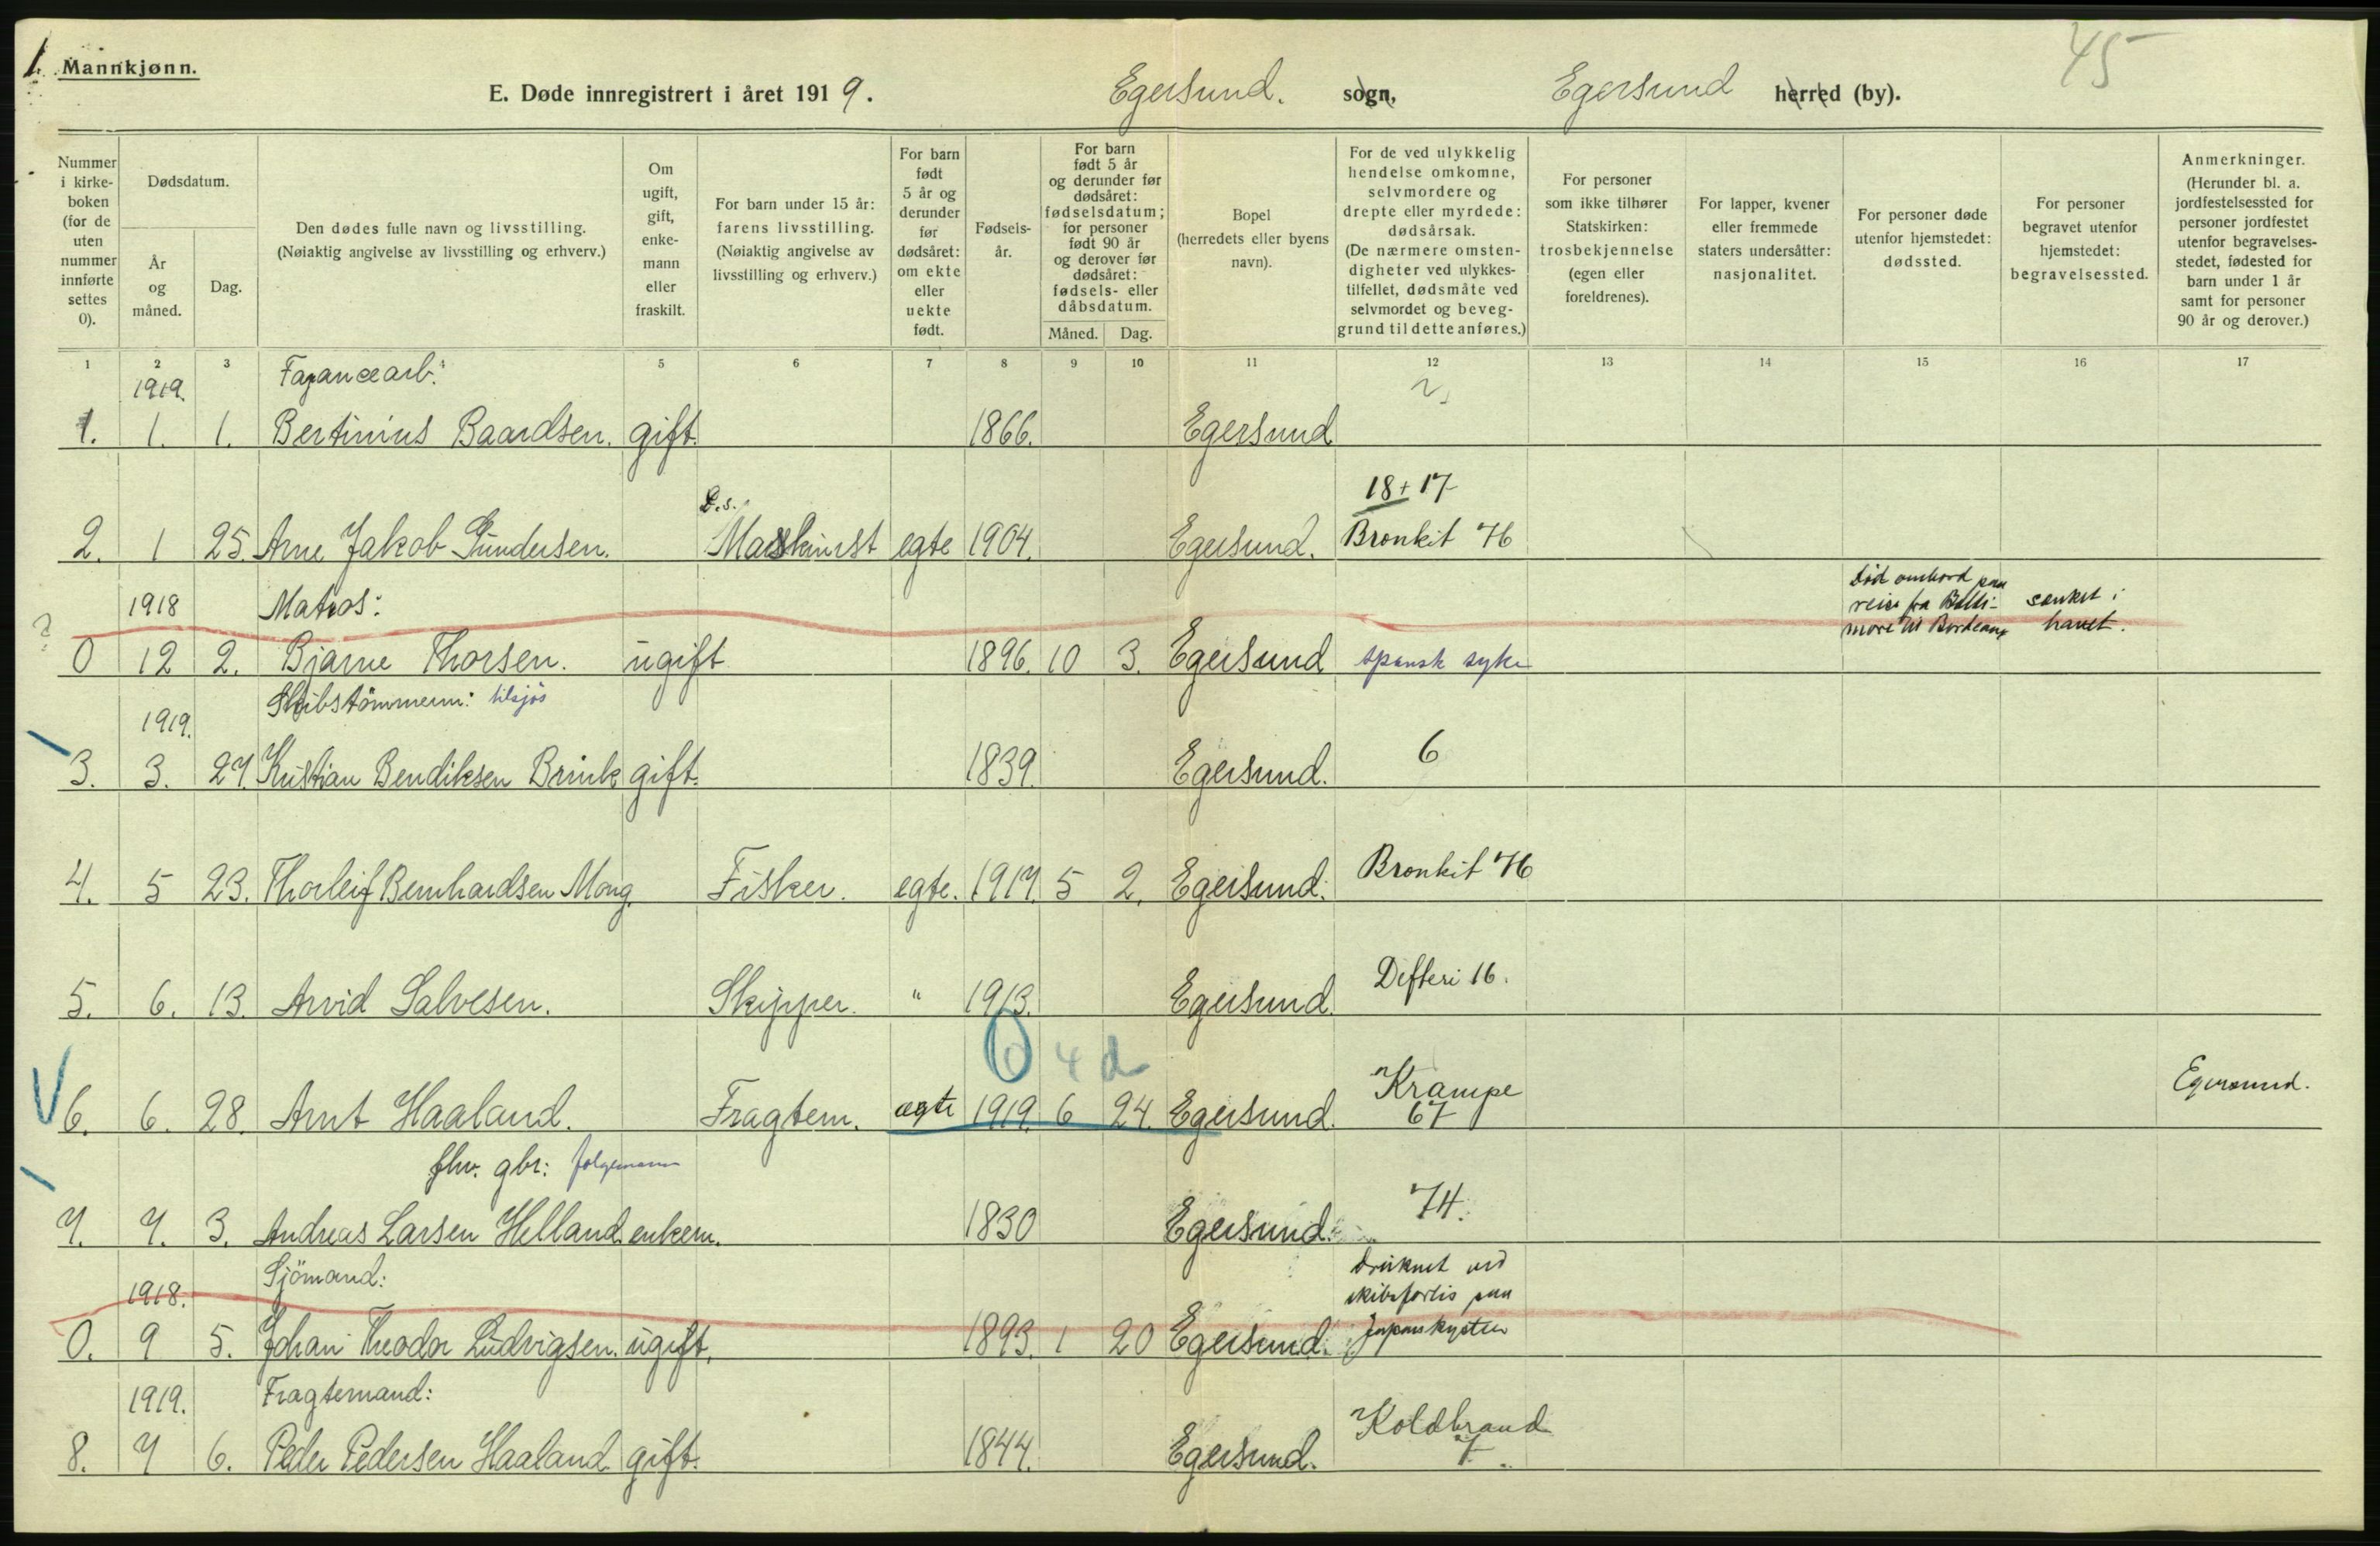 1. Mannkjønn.
45
E. Døde innregistrert i året 1919. Egersund. sogn, Egersund herred (by).
Nummer i kirke-boken (for de uten nummer innførte settes 0).
Dødsdatum.
År og måned.
Dag.
Den dødes fulle navn og livsstilling.
(Nøiaktig angivelse av livsstilling og erhverv.)
Om ugift, gift, enke-mann eller fraskilt.
For barn under 15 år: farens livsstilling. (Nøiaktig angivelse av livsstilling og erhverv.)
For barn født 5 år og derunder før dødsåret: om ekte eller uekte født.
Fødsels-år.
For barn født 5 år og derunder før dødsåret: fødselsdatum; for personer født 90 år og derover før dødsåret: fødsels- eller dåbsdatum.
Måned. Dag.
Bopel (herredets eller byens navn).
For de ved ulykkelig hendelse omkomne, selvmordere og drepte eller myrdede: dødsårsak. (De nærmere omsten-digheter ved ulykkes-tilfellet, dødsmåte ved selvmordet og beveg-grund til dette anføres.)
For personer som ikke tilhører Statskirken: trosbekjennelse (egen eller foreldrenes).
For lapper, kvener eller fremmede staters undersåtter: nasjonalitet.
For personer døde utenfor hjemstedet: dødssted.
For personer begravet utenfor hjemstedet: begravelsessted.
Anmerkninger. (Herunder bl. a. jordfestelsessted for personer jordfestet utenfor begravelses-stedet, fødested for barn under 1 år samt for personer 90 år og derover.)
1 2 3 5 6 7 8 9 10 11 12 13 14 15 16 17
1919. Fajancearb:
1. 1. 1. Bertinius Baardsen. gift. 1866. Egersund
D.s. 18 + 17
2. 1 25. Arne Jakob Gundersen. Maskinist egte 1904. Egersund. Bronkit 76
1918 Matros: Død ombord paa reise fra Balti-more til Bordeaux sænket i havet.
0 12 2. Bjarne Thorsen. ugift 1896. 10 3. Egersund spansk syke
1919. Skibstömmerm: tilsjøs
3. 3. 27. Kristian Bendiksen Brink gift. 1839. Egersund. 6
4. 5 23. Thorleif Bernhardsen Mong. Fisker. egte. 1917. 5 2. Egersund. Bronkit 76
5. 6. 13. Arvid Salvesen. Skipper. " 1913. Egersund. Difteri 16.
0 4 d
6. 6. 28. Arnt Haaland. Fragtem. ægte 1919. 6 24. Egersund. Krampe 67 Egersund.
fhv. gbr:
7. 7. 3. Andreas Larsen Helland enkem. 1830 Egersund. 74.
1918. Sjömand: Druknet ved skibsforlis paa Japanskysten
0. 9 5. Johan Theodor Ludvigsen. ugift. 1893. 1 20 Egersund.
1919. Fragtemand:
8. 7 6. Peder Pedersen Haaland gift. 1844. Egersund. Koldbrand 7.